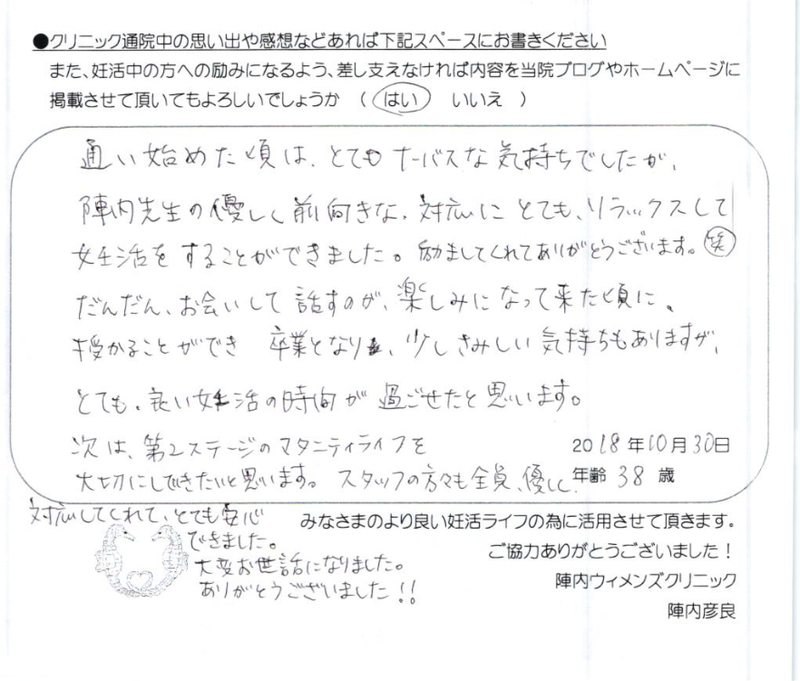 ●クリニック通院中の思い出や感想などあれば下記スペースにお書きください
また、妊活中の方への励みになるよう、差し支えなければ内容を当院ブログやホームページに
掲載させて頂いてもよろしいでしょうか （ はい いいえ ）
通い始めた頃は、とてもナーバスな気持ちでしたが、
陣内先生の優しく前向きな、対応にとても、リラックスして
妊活をすることができました。励ましてくれてありがとうございます。笑
だんだん、お会いして話すのが、楽しみになって来た頃に、
授かることができ 卒業となり、少しさみしい気持ちもありますが、
とても、良い妊活の時間が過ごせたと思います。
次は、第2ステージのマタニティライフを
大切にしできたいと思います。スタッフの方々も全員、優しく
2018年10月30日
年齢 38 歳
対応してくれて、とても安心
できました。
大変お世話になりました。
ありがとうございました!!
みなさまのより良い妊活ライフの為に活用させて頂きます。
ご協力ありがとうございました！
陣内ウィメンズクリニック
陣内彦良